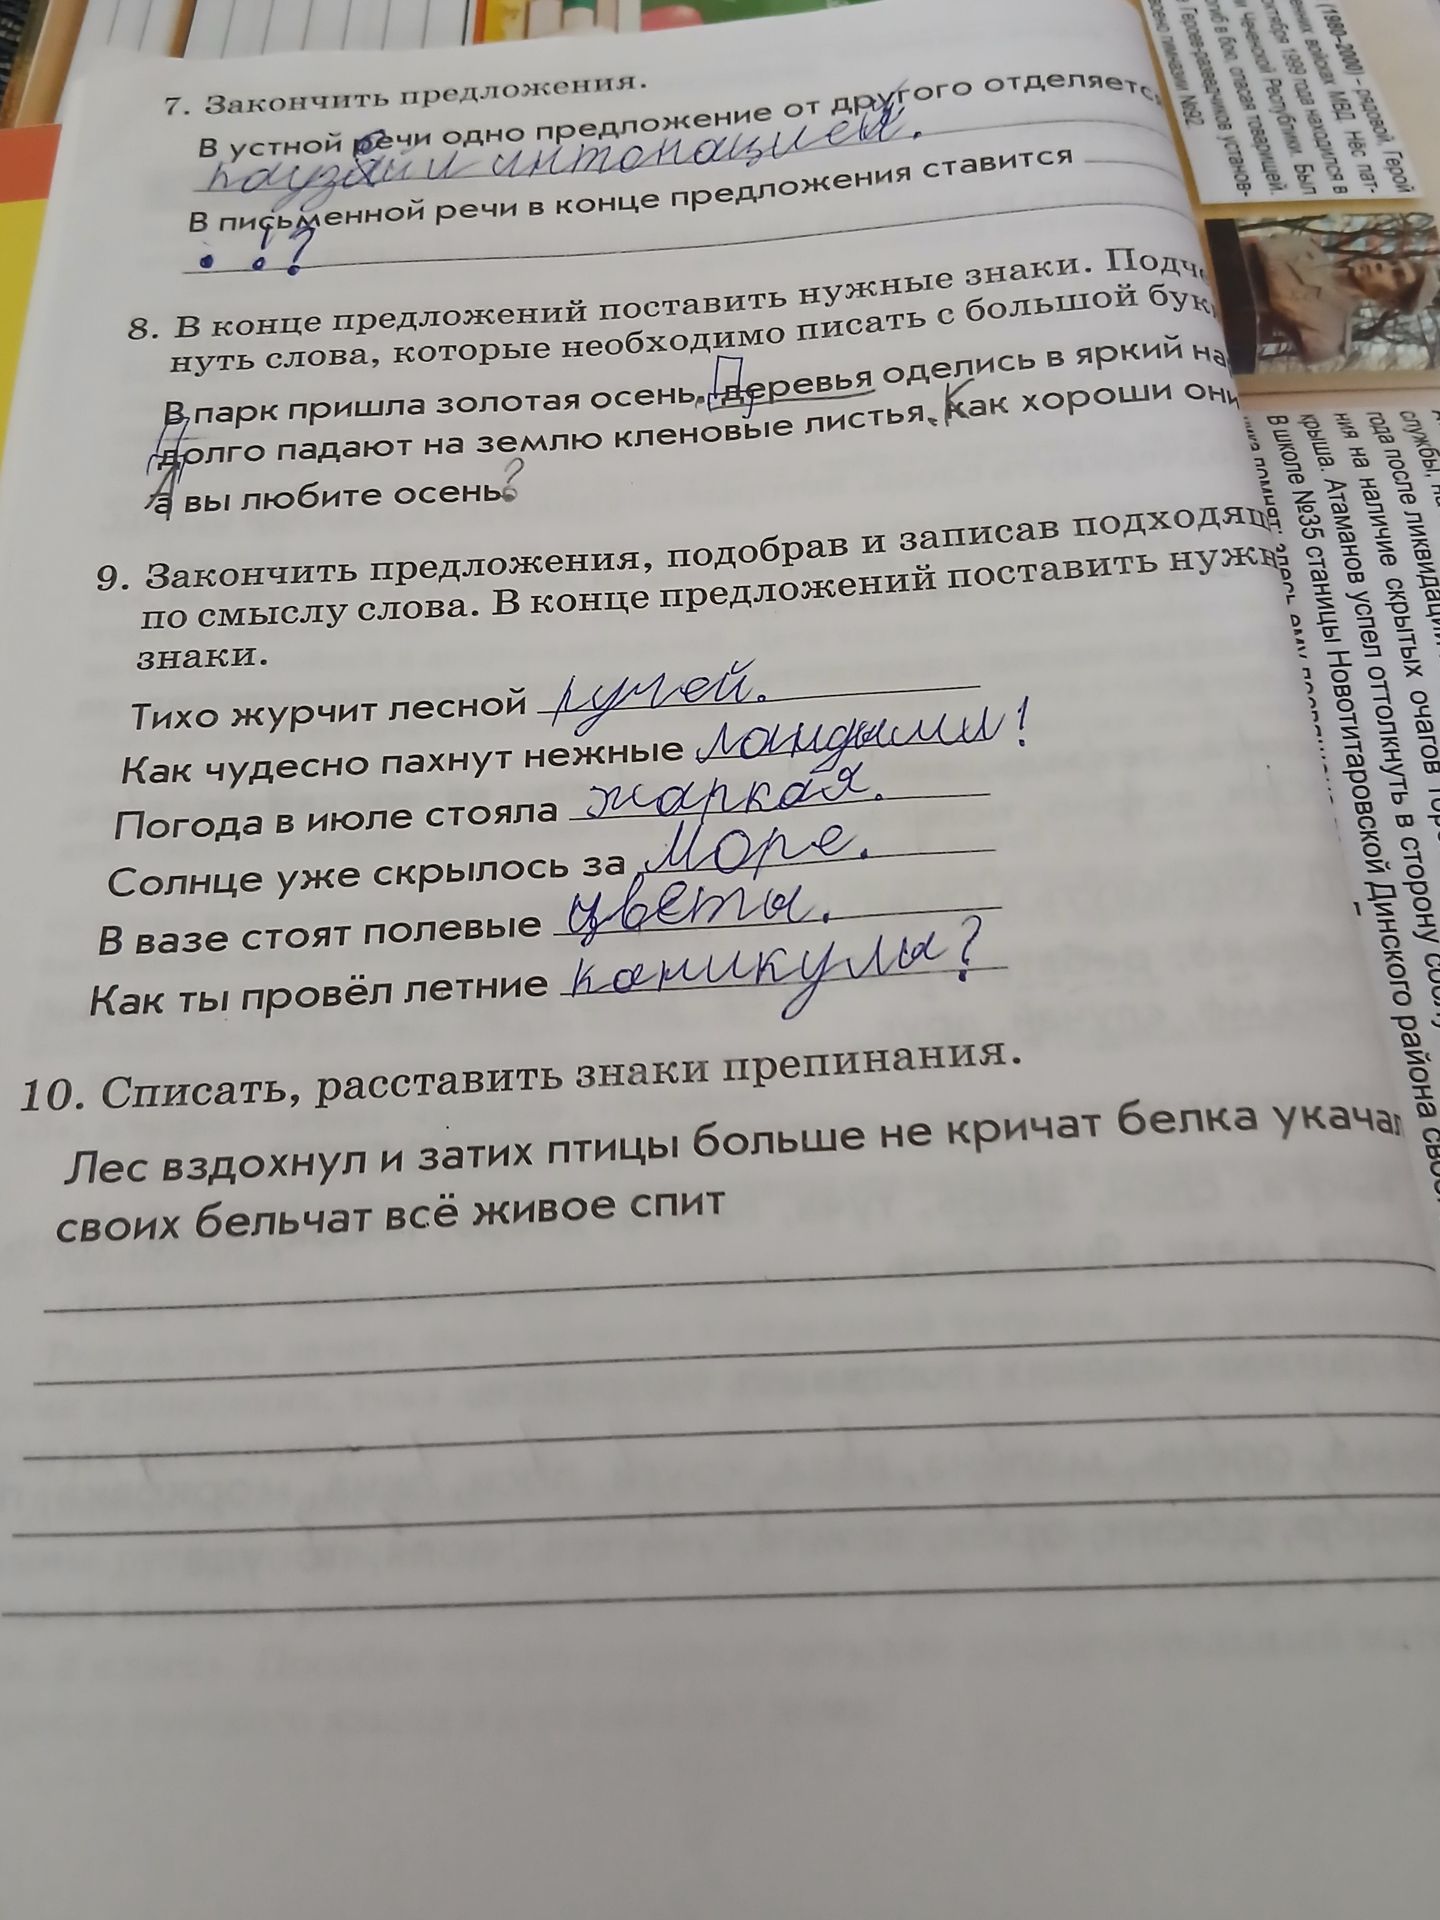 7. Закончить предложения.
В устной речи одно предложение от другого отделяется
паузой и интонацией.
В письменной речи в конце предложения ставится
. ! ?
8. В конце предложений поставить нужные знаки. Подче
нуть слова, которые необходимо писать с большой бук
В парк пришла золотая осень. Деревья оделись в яркий на
Долго падают на землю кленовые листья. Как хороши они
А вы любите осень?
9. Закончить предложения, подобрав и записав подходящ
по смыслу слова. В конце предложений поставить нужн
знаки.
Тихо журчит лесной ручей.
Как чудесно пахнут нежные ландыши!
Погода в июле стояла жаркая.
Солнце уже скрылось за море.
В вазе стоят полевые цветы.
Как ты провёл летние каникулы?
10. Списать, расставить знаки препинания.
Лес вздохнул и затих птицы больше не кричат белка укачал
своих бельчат всё живое спит
(1980–2000) – рядовой, Герой
войсках МВД нёс пат-
октября 1999 года находился в
Чеченской Республики. Был
в бою, спасая товарищей.
Героев-разведчиков установ-
гимназии №92
службы, на
года после ликвидации
ния на наличие скрытых очагов
крыша. Атаманов успел оттолкнуть в сторону
В школе №35 станицы Новотитаровской Динского района